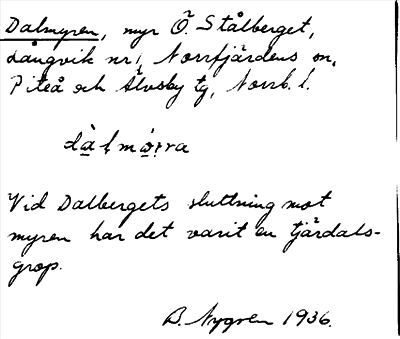 Dalmyren, myr Ö. Stålberget,
Långvik nr 1, Norrfjärdens sn,
Piteå och Älvsby tg, Norrb. l.
Vid Dalbergets sluttning mot
myren har det varit en tjärdals-
grop.
B. Nygren 1936.